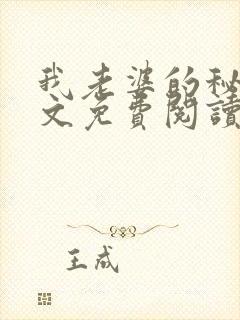 我老婆的秘
文免費閱讀
王成